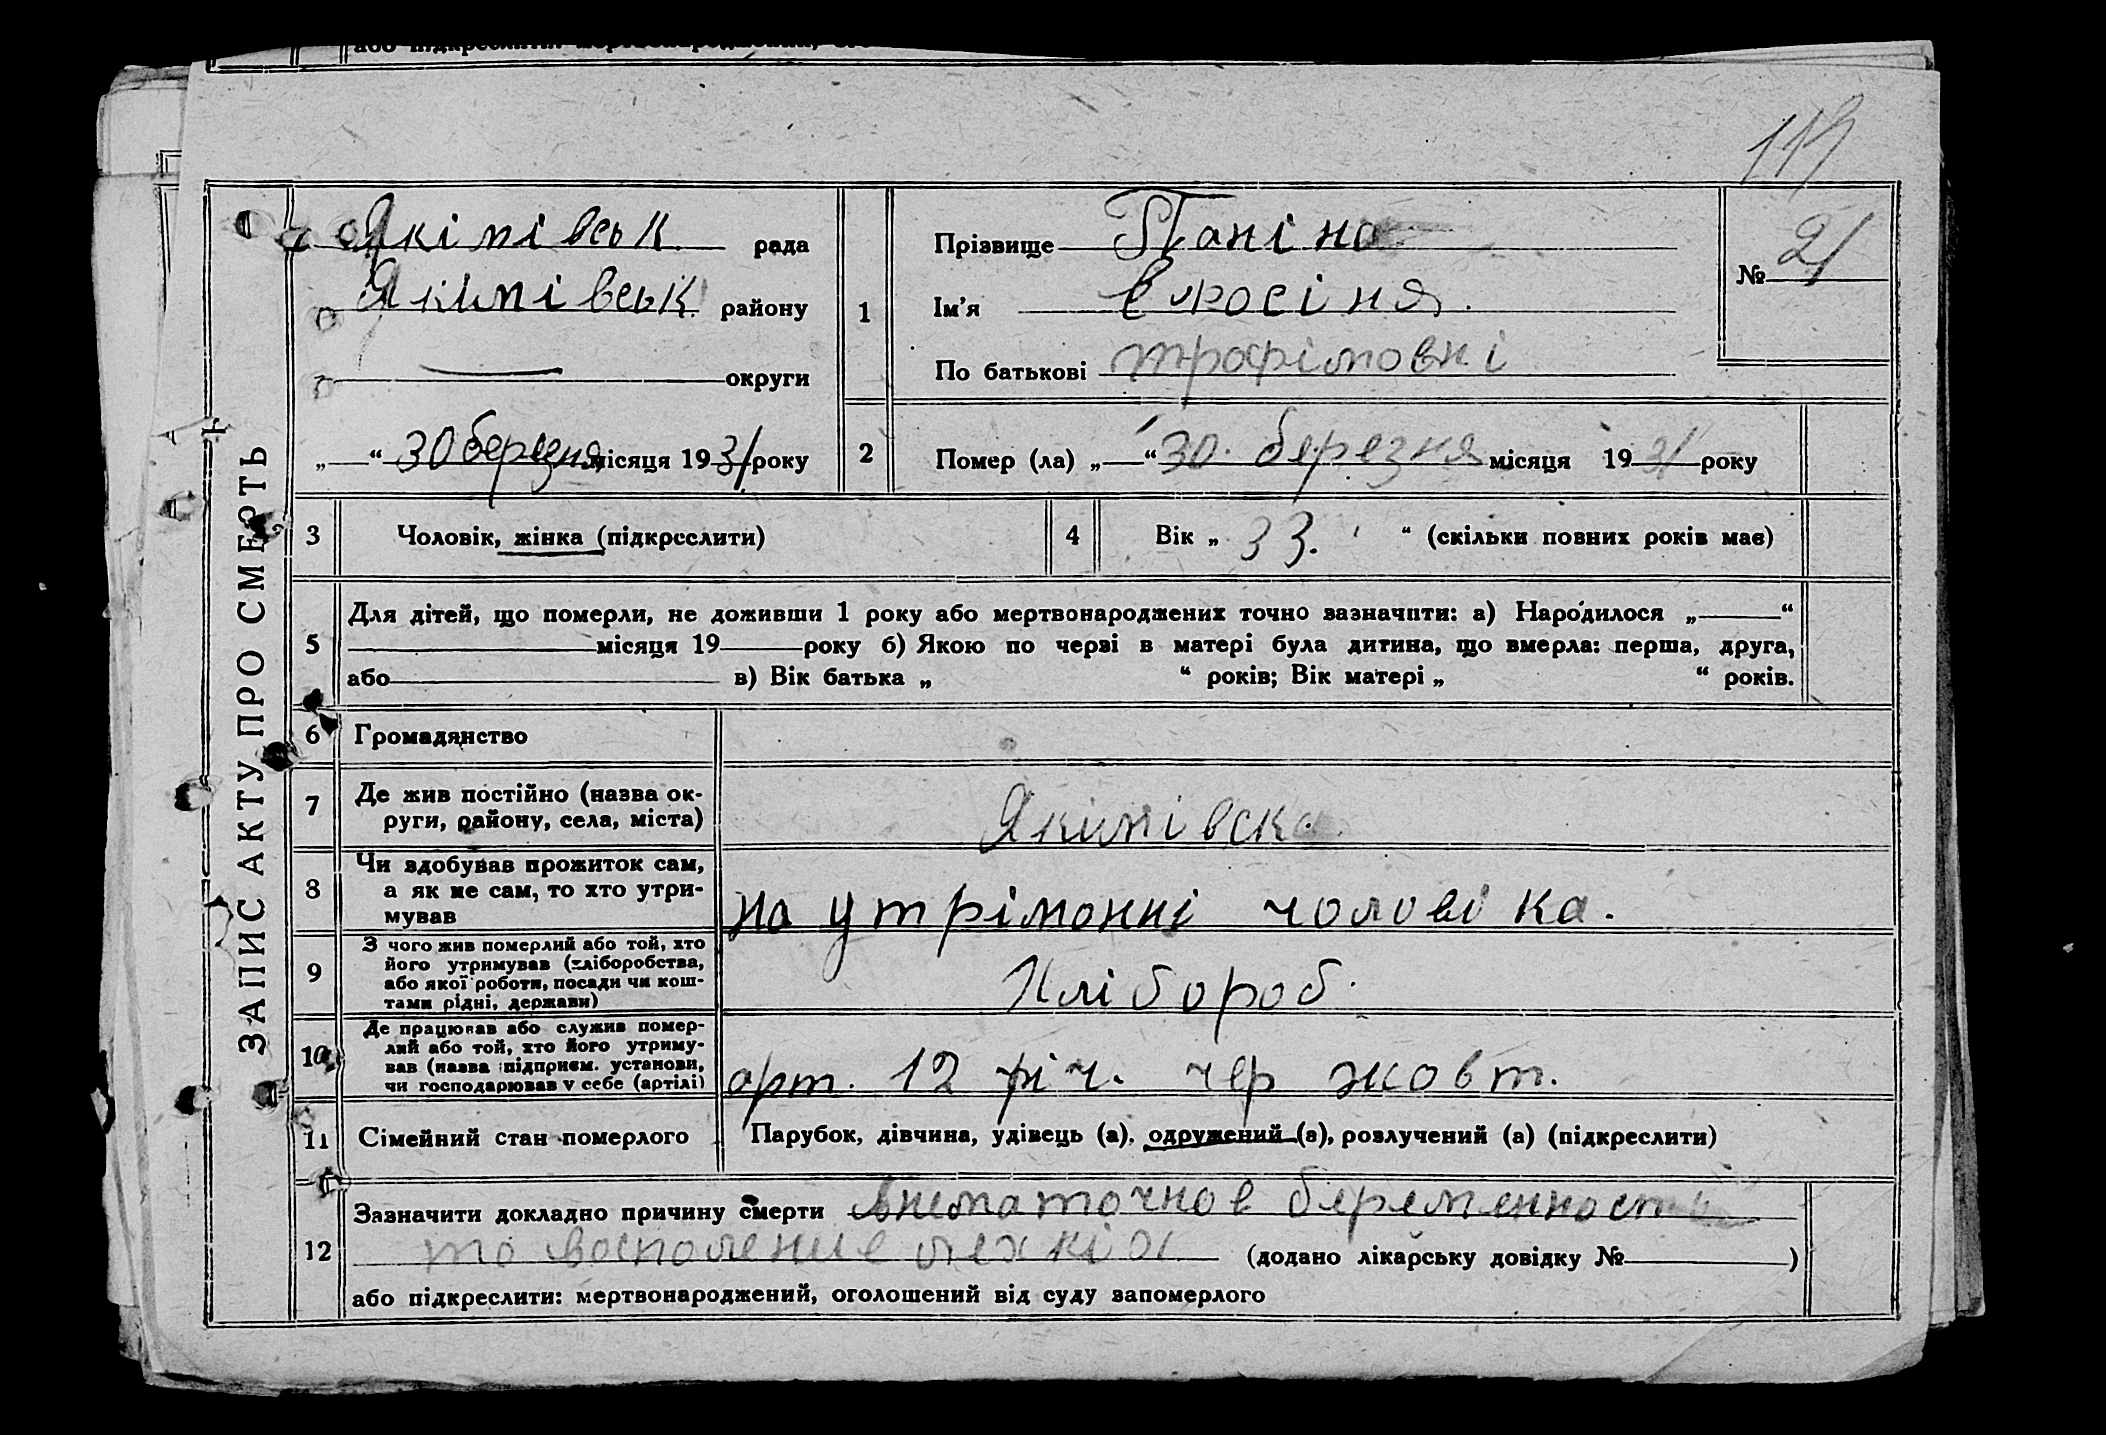 або підкреслити: мертвонароджений,
113
ЗАПИС АКТУ ПРО СМЕРТЬ
Якімівськ рада
Якимівськ району
округи
„ “ 30 березня місяця 1931 року
1
Прізвище Паніна
Ім’я Єфросіня.
По батькові трофімовні
№ 21
2
Помер (ла) „ “ 30. березня місяця 1931 року
3 Чоловік, жінка (підкреслити)
4 Вік „ 33. “ (скільки повних років має)
5
Для дітей, що померли, не доживши 1 року або мертвонароджених точно зазначити: а) Народилося „ “
місяця 19 року б) Якою по черзі в матері була дитина, що вмерла: перша, друга,
або в) Вік батька „ “ років; Вік матері „ “ років.
6 Громадянство
7 Де жив постійно (назва ок-
руги, району, села, міста)
Якимівска
8 Чи здобував прожиток сам,
а як не сам, то хто утри-
мував
на утрімонні чоловіка.
9 З чого жив померлий або той, хто
його утримував (хліборобства,
або якої роботи, посади чи кош-
тами рідні, держави)
Хлібороб.
10 Де працював або служив помер-
лий або той, хто його утриму-
вав (назва підприєм. установи,
чи господарював у себе (артілі)
арт. 12 річ. чер жовт.
11 Сімейний стан померлого
Парубок, дівчина, удівець (а), одружений (а), розлучений (а) (підкреслити)
12
Зазначити докладно причину смерти внематочное беременност
то восполение
(додано лікарську довідку № )
або підкреслити: мертвонароджений, оголошений від суду запомерлого